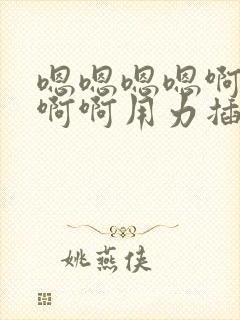 嗯嗯嗯嗯啊
啊啊用力插
姚燕侠